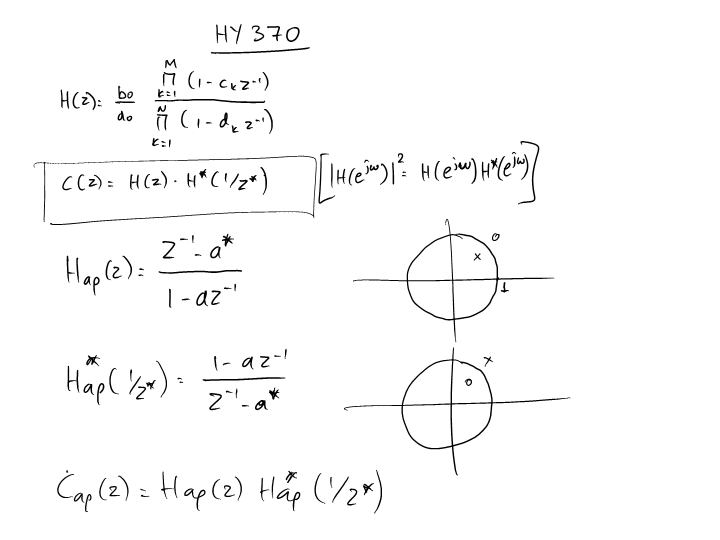 HY 370
H(z) = b₀/d₀ ∏_{k=1}^{M} (1 - c_k z⁻¹) / ∏_{k=1}^{N} (1 - d_k z⁻¹)
C(z) = H(z) · H*(1/z*) [|H(e^{jω})|² = H(e^{jω}) H*(e^{jω})]
H_ap(z) = (z⁻¹ - a*) / (1 - az⁻¹)
o
x
1
H*_ap(1/z*) = (1 - az⁻¹) / (z⁻¹ - a*)
x
o
C_ap(z) = H_ap(z) H*_ap(1/z*)